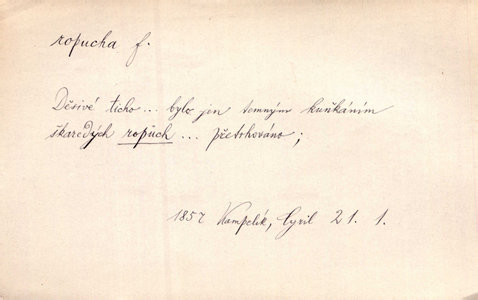 ropucha f.
Děsivé ticho... bylo jen temným kuňkáním
škaredých ropuch... přetrhováno;
1857 Kampelík, Cyril 21. 1.